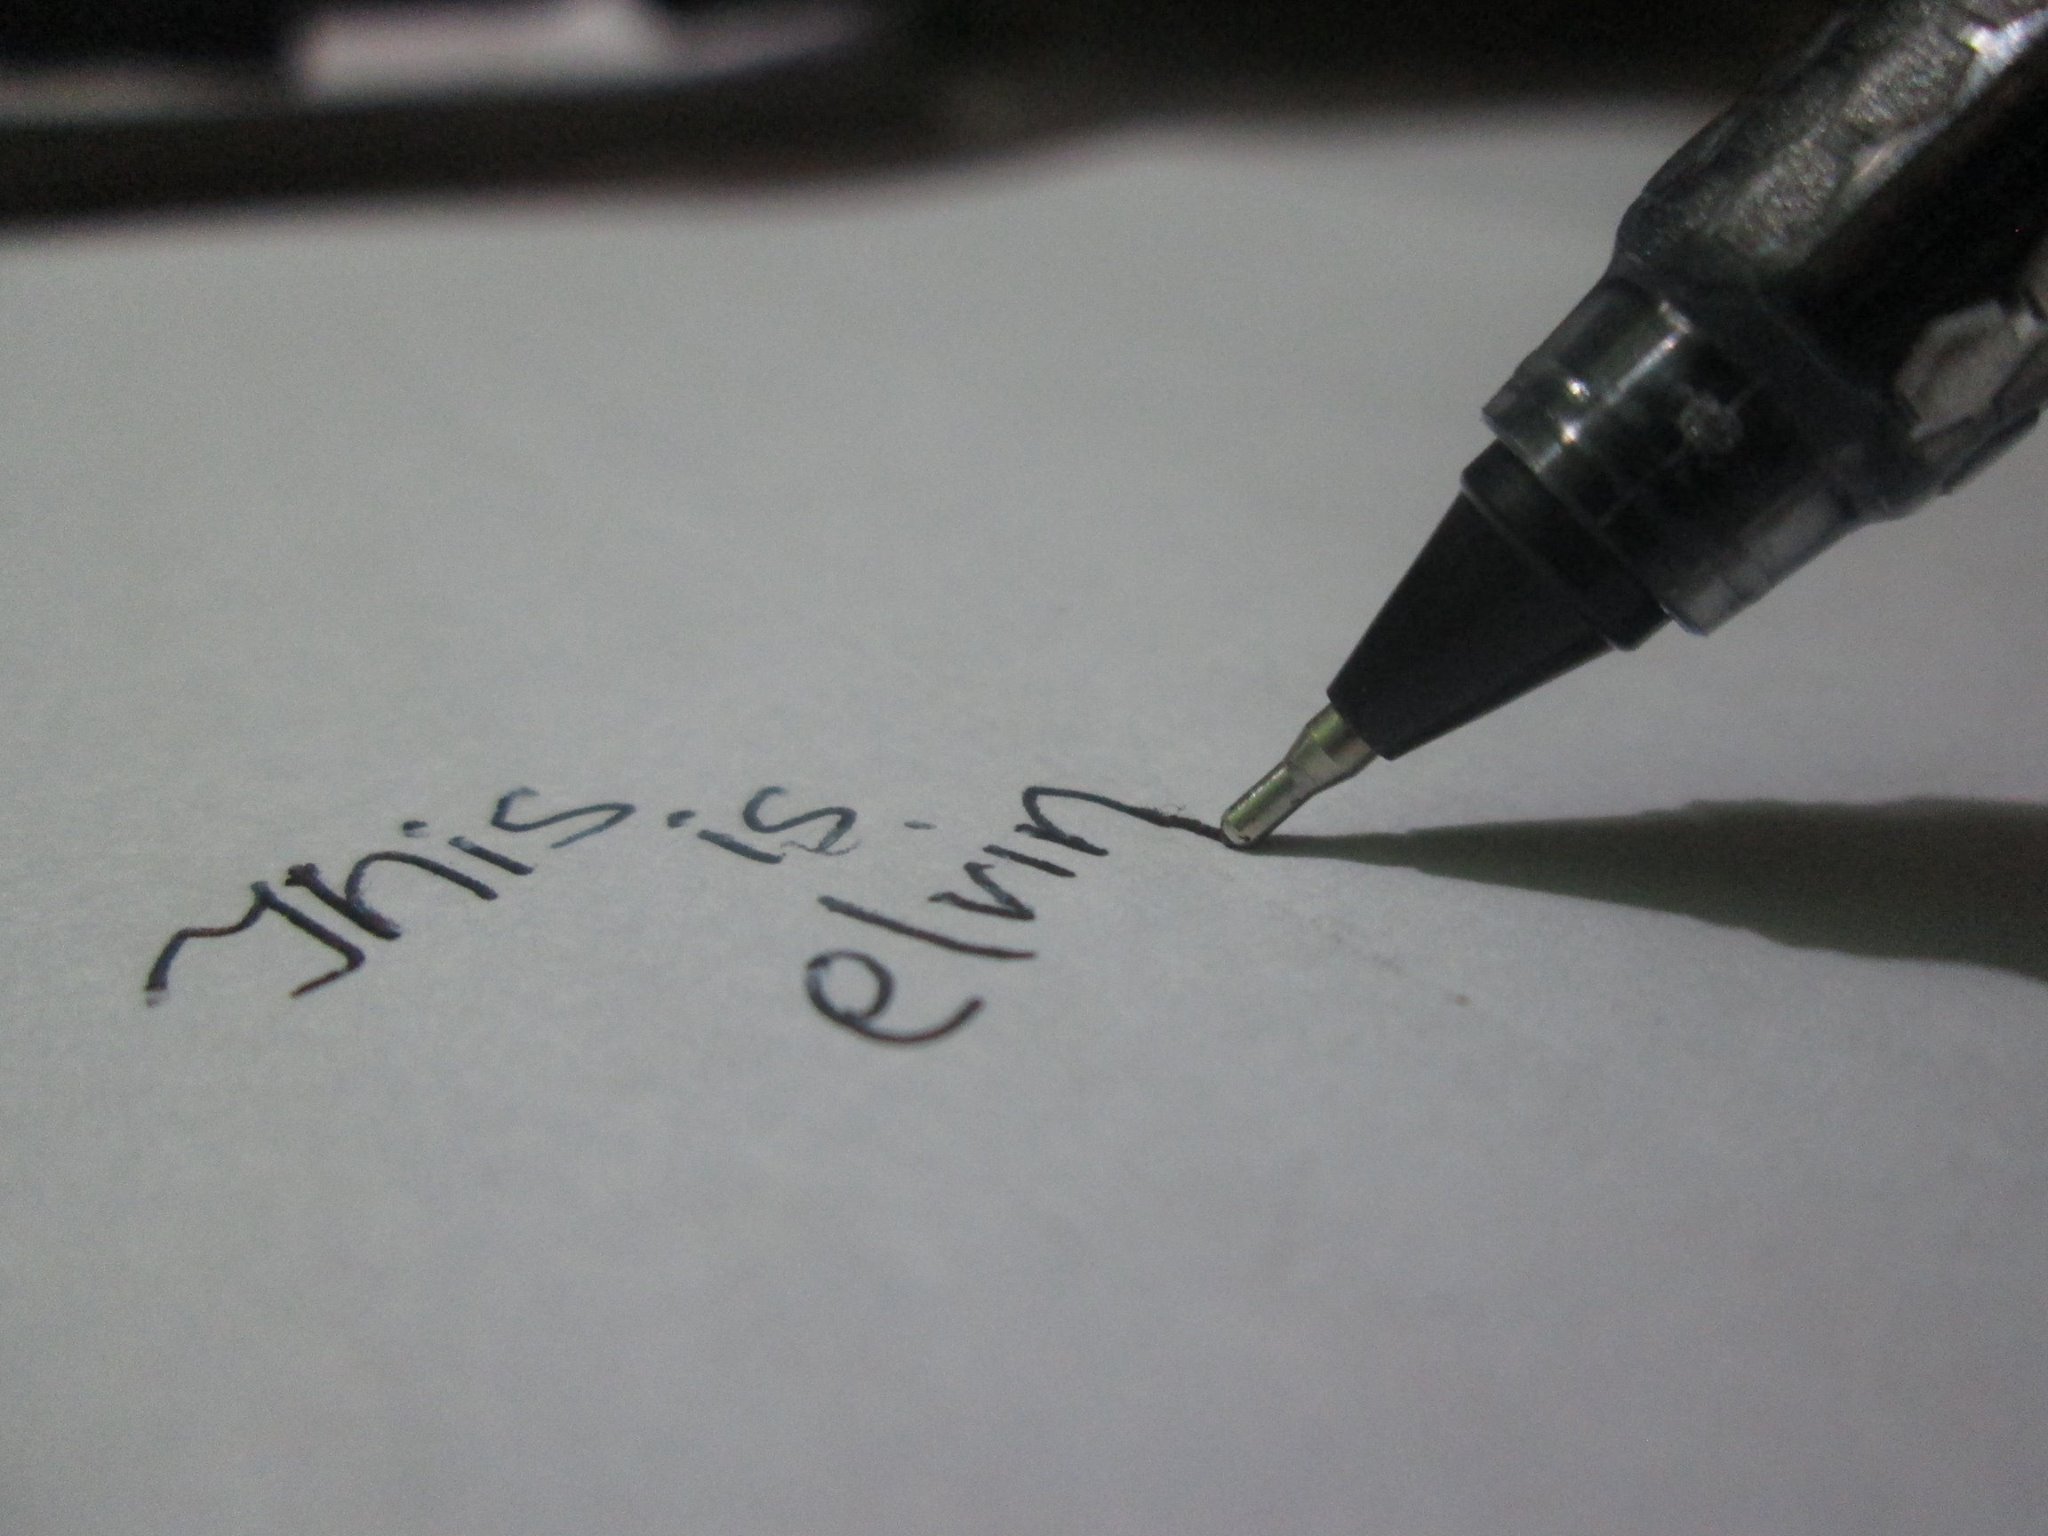 This is
elvin